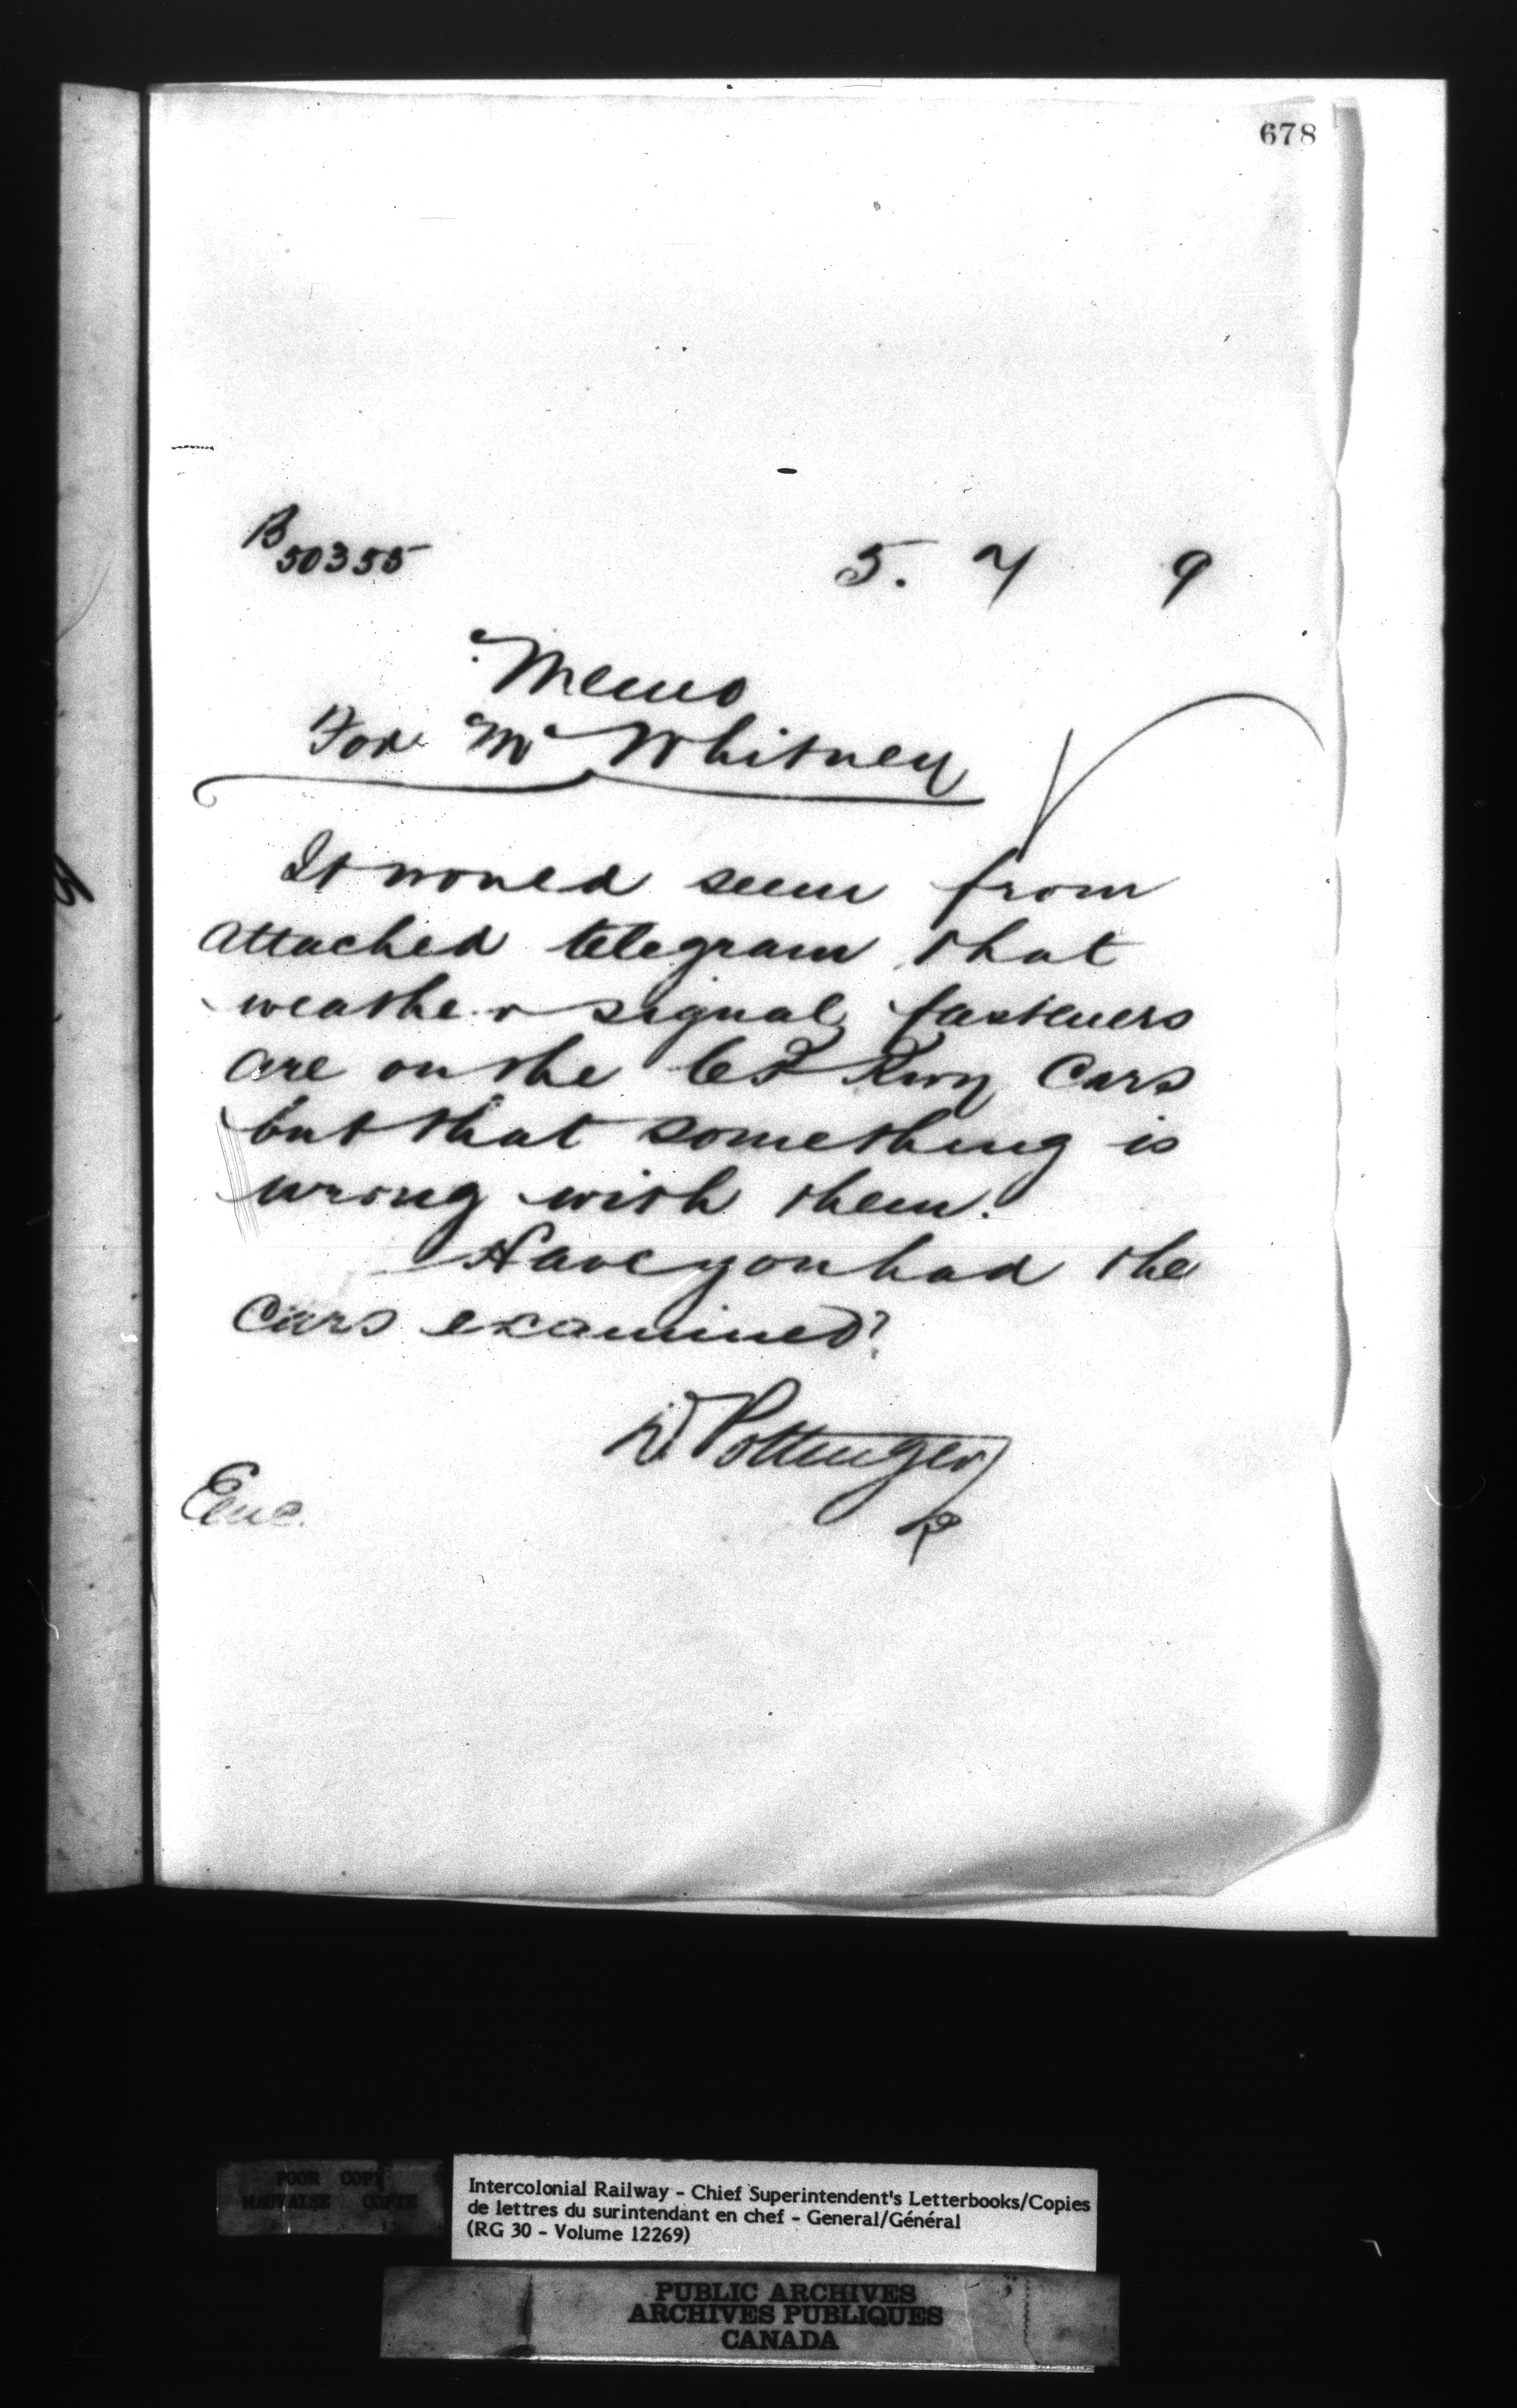 678
B 50355 5. 7 9
Memo
For Mr Whitney
It would seem from
attached telegram that
weather signal fasteners
are on the Rwy Cars
but that something is
wrong with them.
Have you had the
cars examined?
D Pottinger
R
Enc.
POOR COPY
MAUVAISE COPIE
Intercolonial Railway - Chief Superintendent's Letterbooks/Copies
de lettres du surintendant en chef - General/Général
(RG 30 - Volume 12269)
PUBLIC ARCHIVES
ARCHIVES PUBLIQUES
CANADA